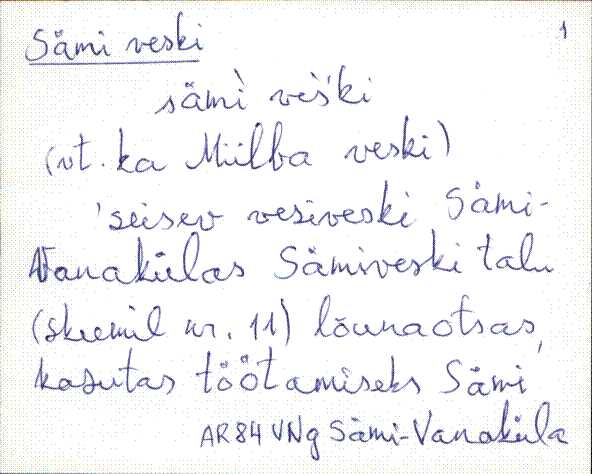 Sämi veski 1
sämì veški
(vt. ka Miilba veski)
'seisev vesiveski Sämi-
Vanakülas Sämiveski talu
(skeemil nr. 11) lõunaotsas,
kasutas töötamiseks Sämi
AR84 VNg Sämi-Vanaküla